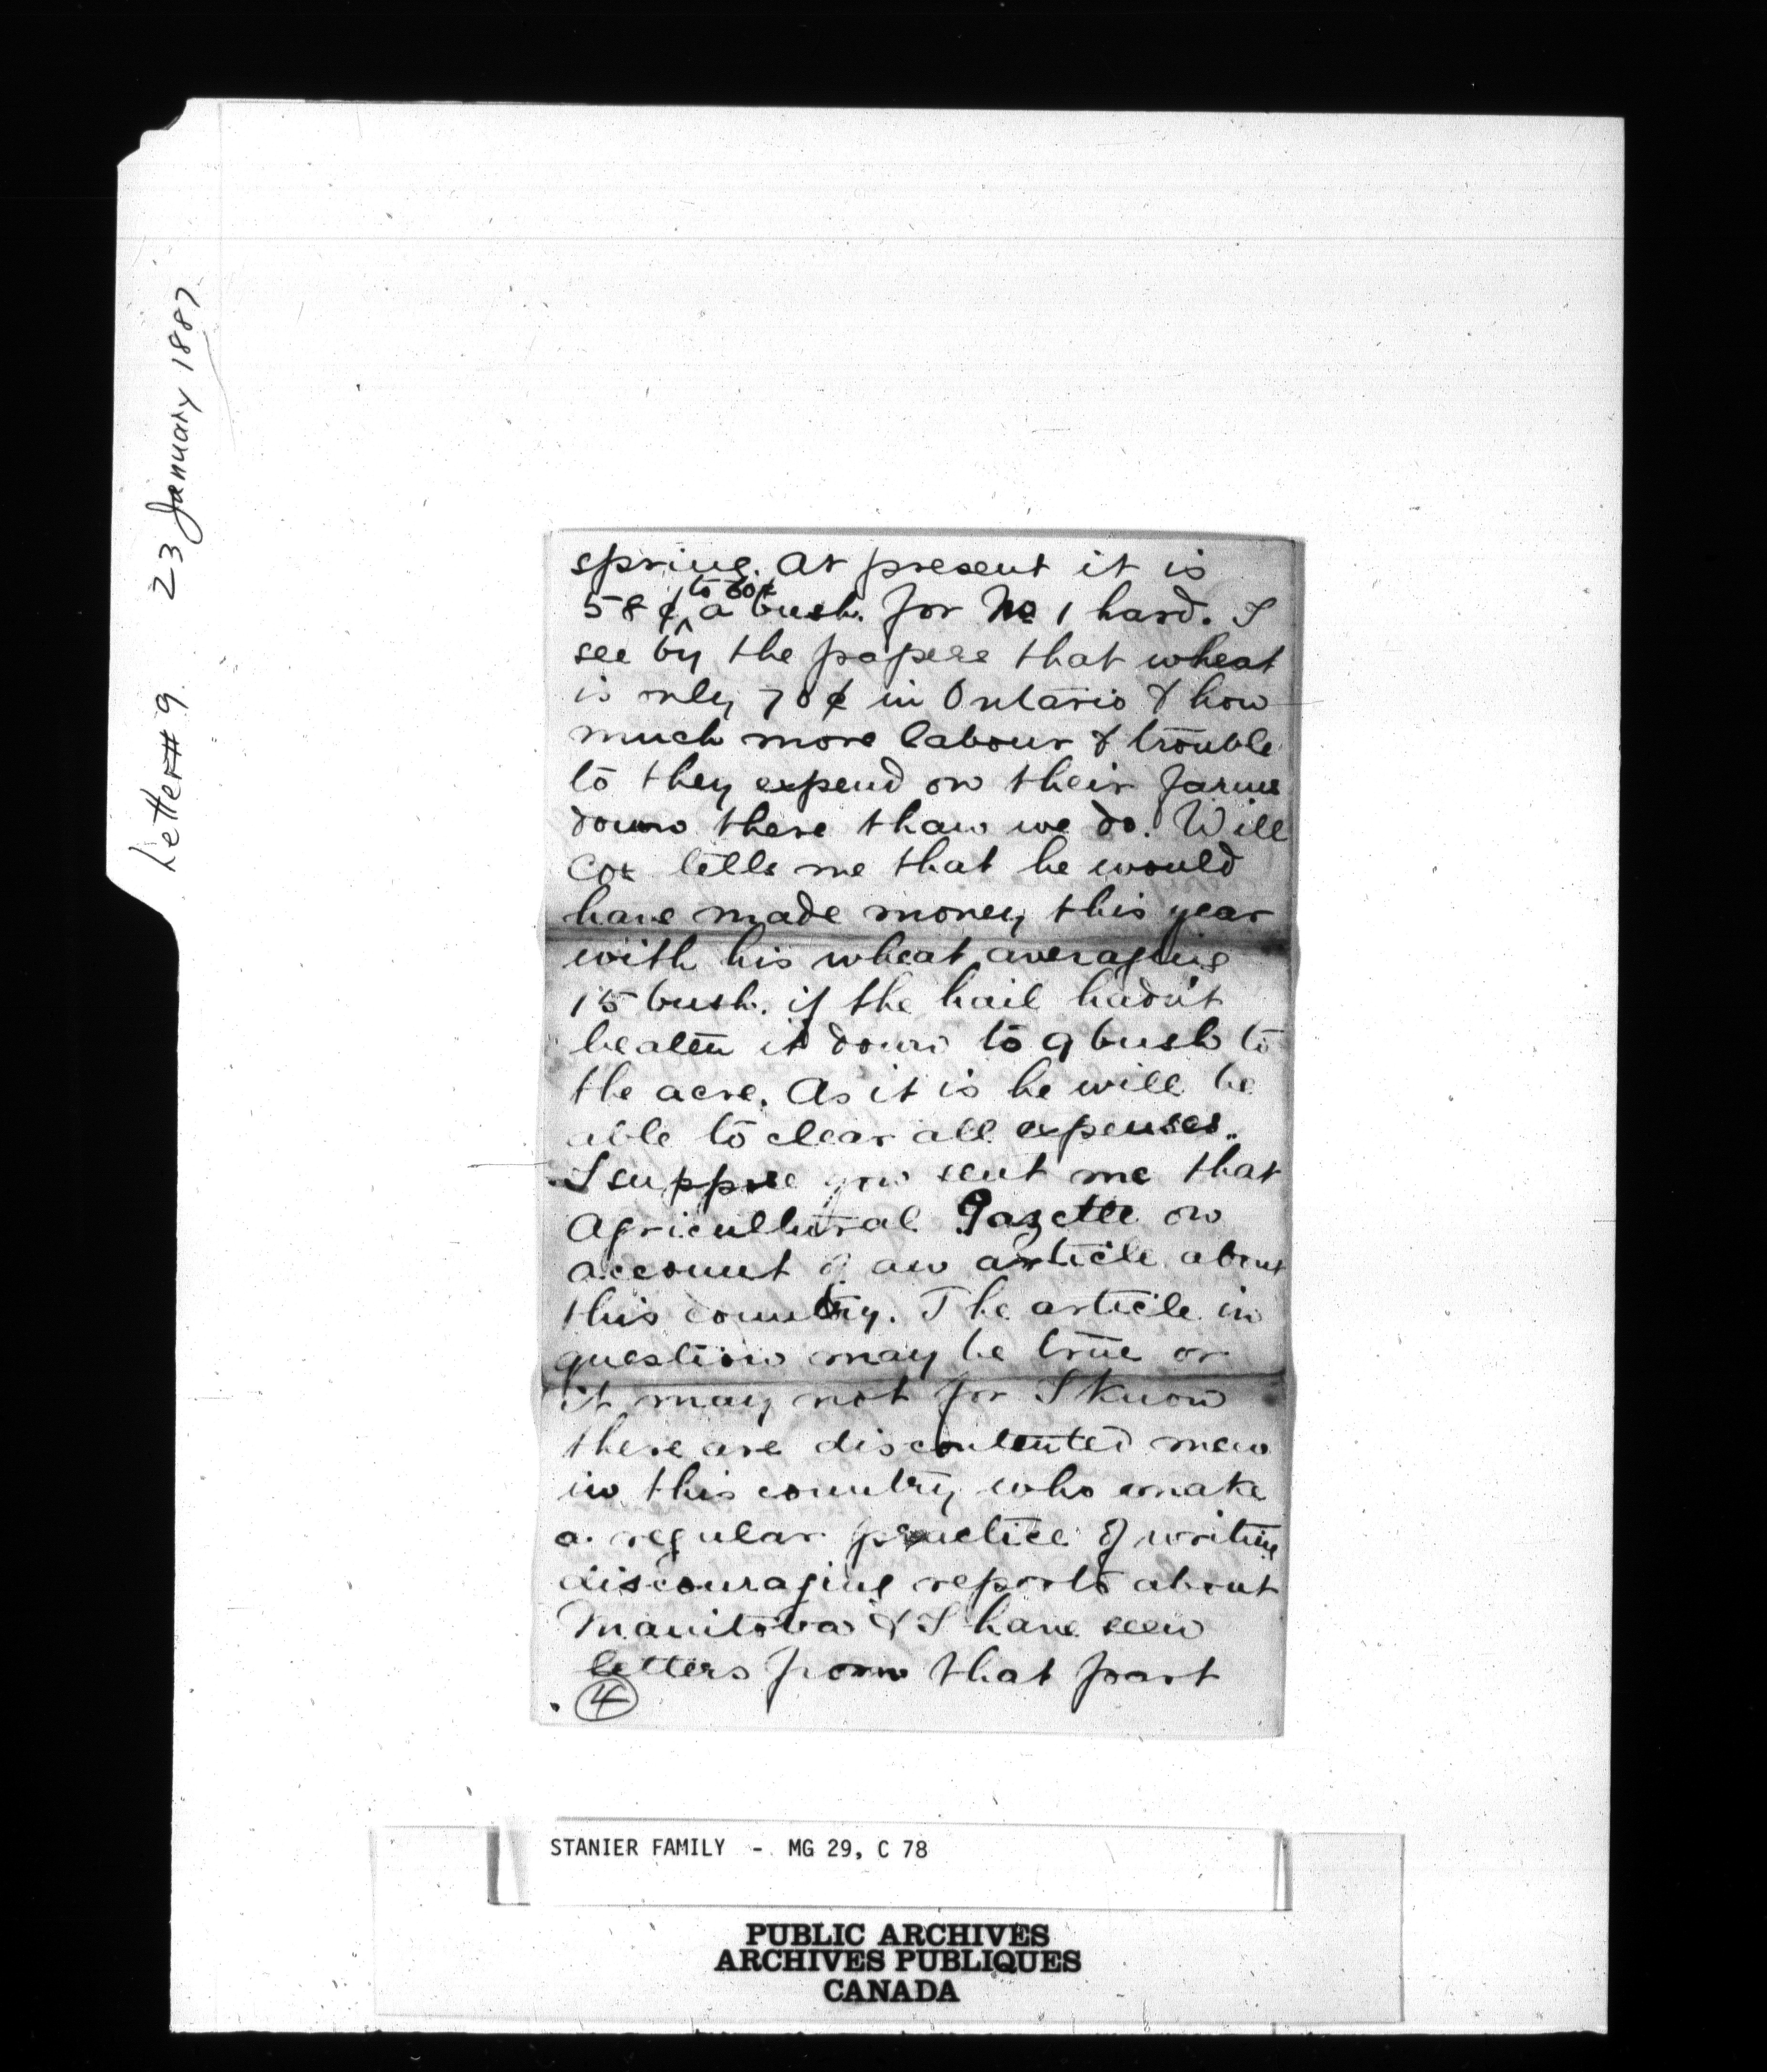 Letter# 9. 23 January 1887
spring. At present it is
58¢ to 60¢ a bush. for No 1 hard. I
see by the papers that wheat
is only 70¢ in Ontario & how
much more labour & trouble
to they expend on their farms
down there than we do. Will
Cox tells me that he would
have made money this year
with his wheat averaging
15 bush. if the hail hadn't
beaten it down to 9 bush to
the acre. As it is he will be
able to clear all expenses..
I suppose you sent me that
Agricultural Gazette on
account of an article about
this country. The article in
question may be true or
it may not for I know
there are discontented men
in this country who make
a regular practice of writing
discouraging reports about
Manitoba & I have seen
letters from that part
4
STANIER FAMILY - MG 29, C 78
PUBLIC ARCHIVES
ARCHIVES PUBLIQUES
CANADA